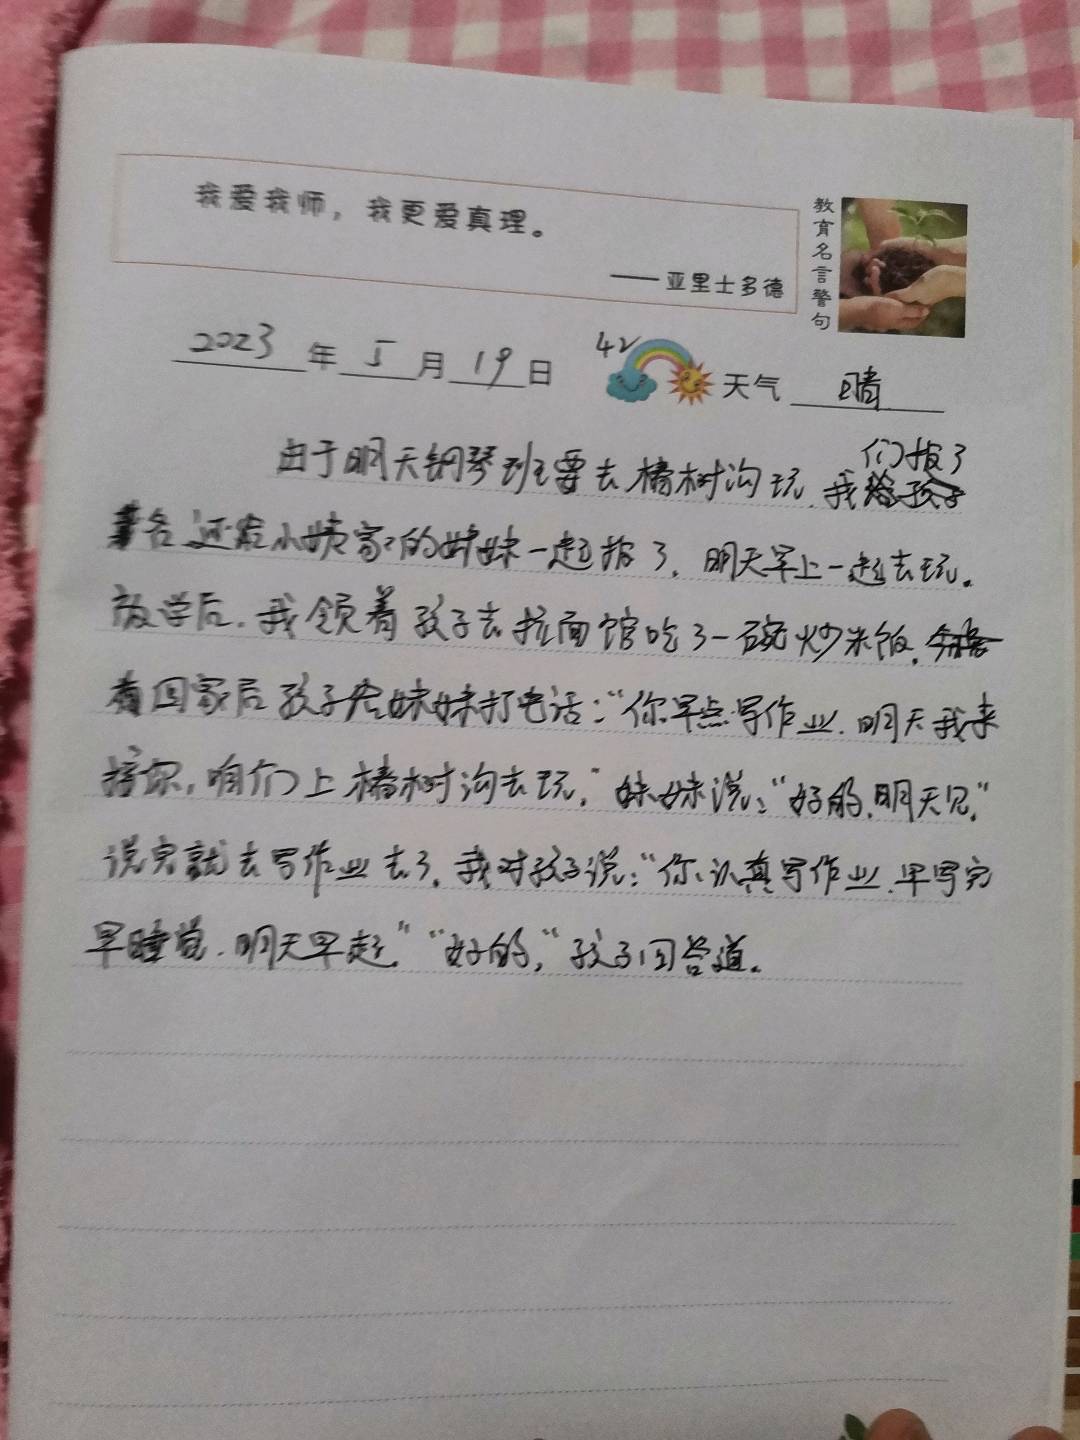 我爱我师，我更爱真理。
——亚里士多德
教育名言警句
2023年5月19日
42
天气 晴
由于明天钢琴班要去椿树沟玩，我们报了
名还有小姨家的妹妹一起报了，明天早上一起去玩。
放学后，我领着孩子去拉面馆吃了一碗炒米饭，
回家后孩子给妹妹打电话：“你早点写作业，明天我来
接你，咱们上椿树沟去玩，”妹妹说：“好的，明天见，”
说完就去写作业去了，我对孩子说：“你认真写作业，早写完
早睡觉，明天早起，”“好的，”孩子回答道。